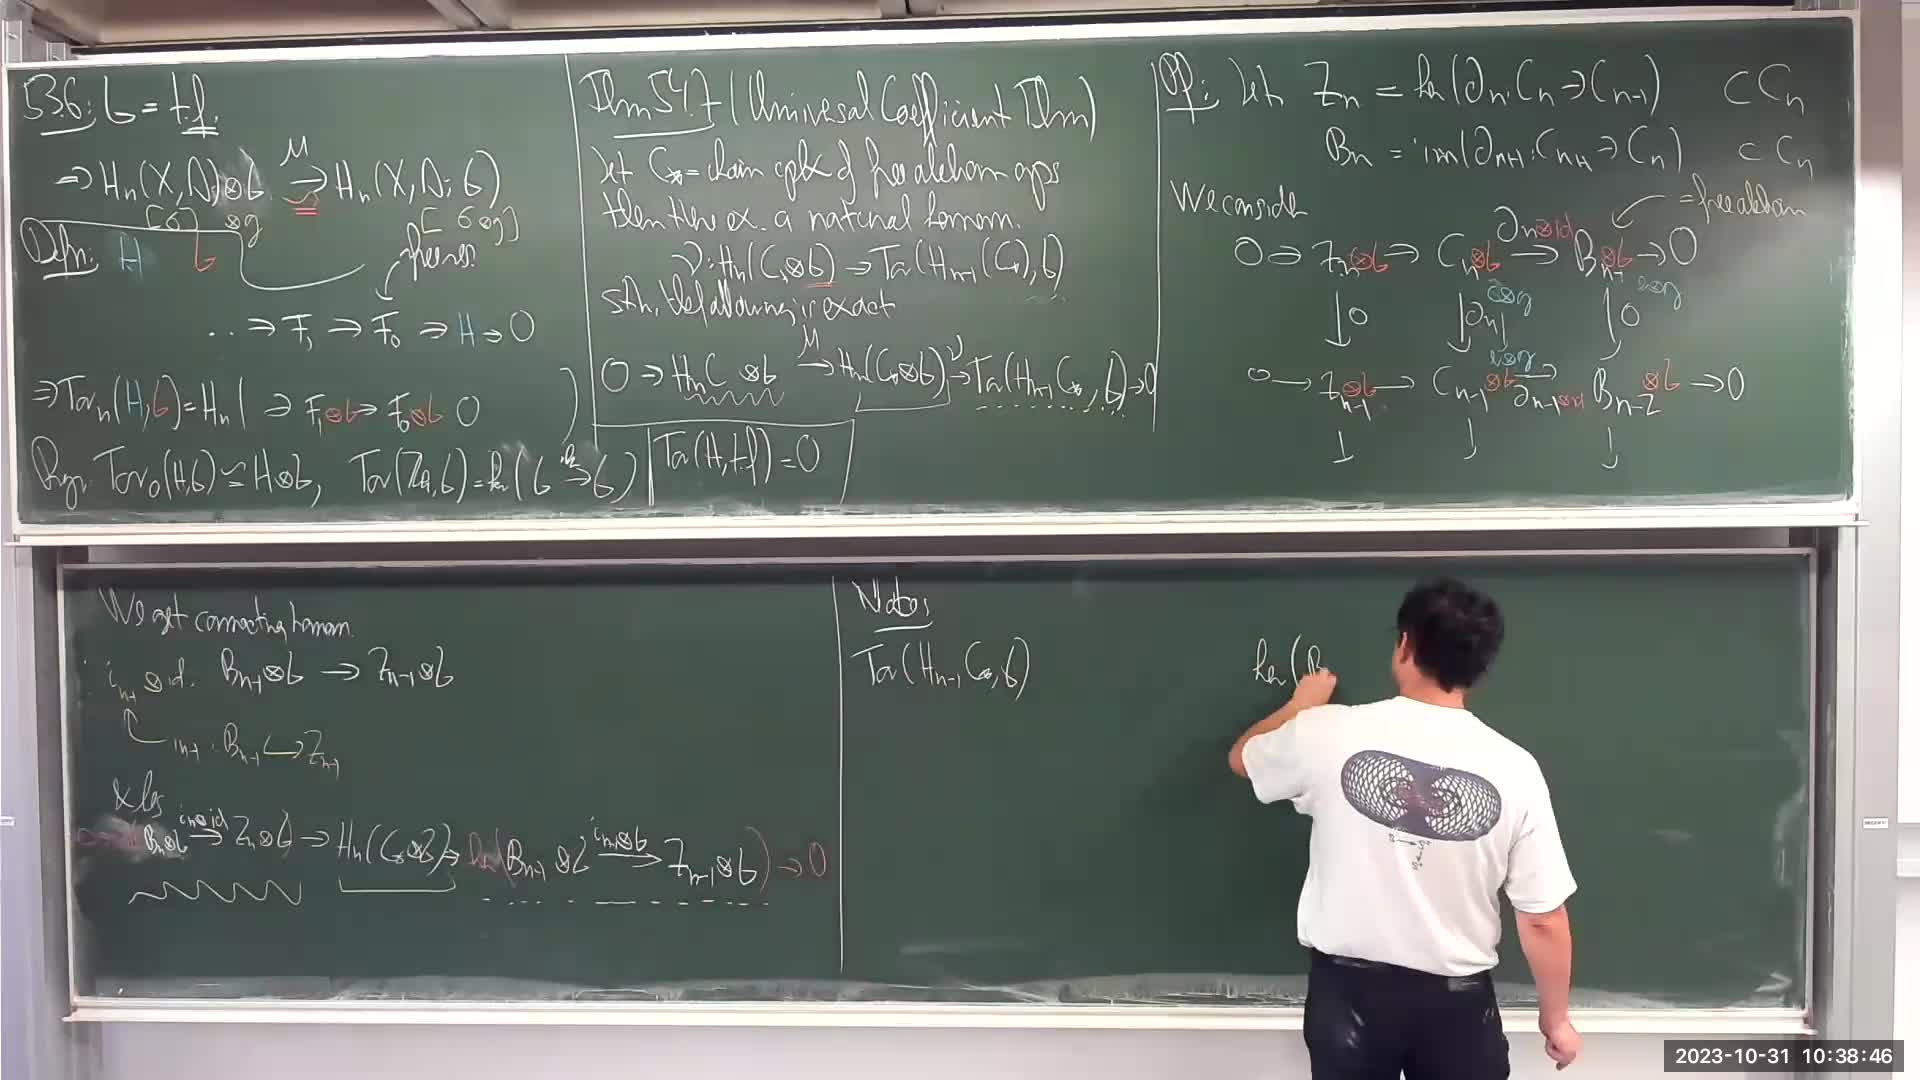 5.3.6: G = t.f.
⇒ Hn(X,A)⊗G →μ Hn(X,A;G)
[σ] ⊗ g [σ⊗g]
Defn: H G free res.
.. → F1 → F0 → H → 0
⇒ Torn(H,G) = Hn( → F1⊗G → F0⊗G 0 )
Tor0(H,G) ≅ H⊗G, Tor(Zn,G) = ker(G →n G)
Tor(H,t.f) = 0
Thm 5.4.7 (Universal Coefficient Thm)
Let C* = chain cplx of free abelian gps
then there ex. a natural homom.
ν: Hn(C*⊗G) → Tor(Hn-1(C*),G)
s.th. the following is exact
0 → HnC ⊗G →μ Hn(C*⊗G) →ν Tor(Hn-1C*,G) → 0
Pf: Let Zn = ker(∂n: Cn → Cn-1) ⊂ Cn
Bn = im(∂n+1: Cn+1 → Cn) ⊂ Cn
We consider = free abelian
0 → Zn⊗G → Cn⊗G →∂n⊗id Bn-1⊗G → 0
↓0 ↓∂n ↓0
0 → Zn-1⊗G → Cn-1⊗G →∂n-1⊗id Bn-2⊗G → 0
↓ ↓ ↓
We get connecting homom.
in-1⊗id. Bn-1⊗G → Zn-1⊗G
in-1: Bn-1 ↪ Zn-1
& les
Bn⊗G →in⊗id Zn⊗G) → Hn(C*⊗G) → ker(Bn-1⊗G →in-1⊗G Zn-1⊗G) → 0
Note:
Tor(Hn-1C*,G) ker(B
2023-10-31 10:38:46